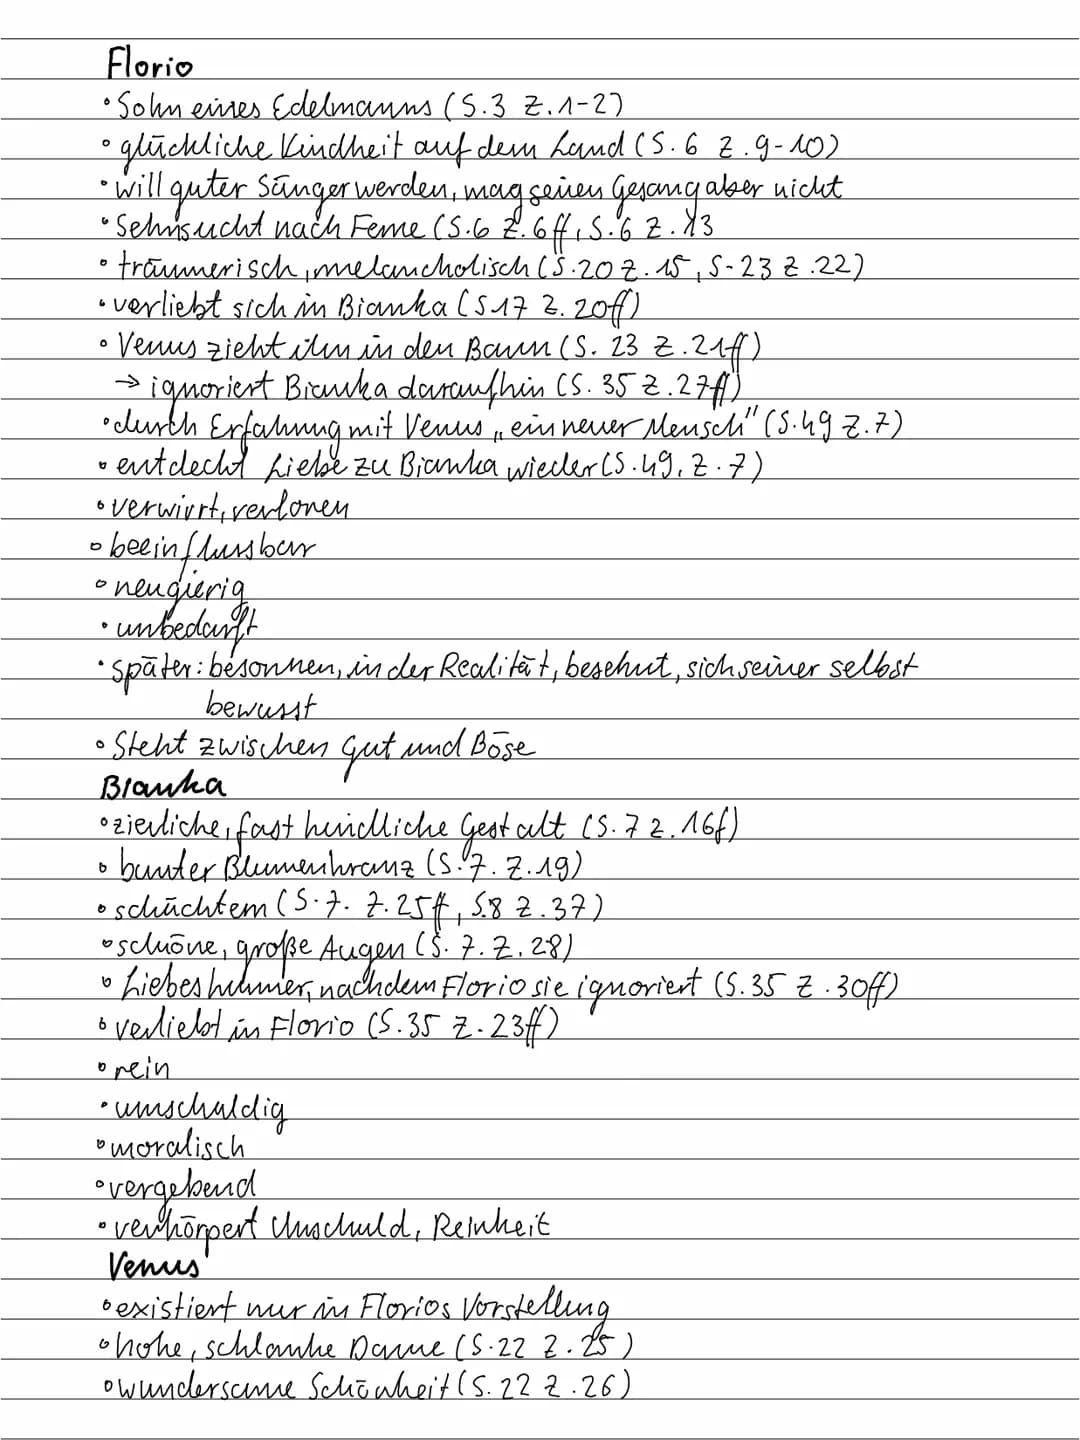 Florio
• Sohn eines Edelmanns (S.3 Z.1-2)
• glückliche Kindheit auf dem Land (S. 6 Z.9-10)
• will guter Sänger werden, mag seinen Gesang aber nicht
• Sehnsucht nach Ferne (S.6 Z.6ff, S.6 Z.13
• träumerisch, melancholisch (S.20 Z.15, S-23 Z.22)
• verliebt sich in Bianka (S17 Z. 20ff)
• Venus zieht ihn in den Bann (S. 23 Z.21ff)
→ ignoriert Bianka daraufhin (S. 35 Z.27ff)
• durch Erfahrung mit Venus „ein neuer Mensch" (S.49 Z.7)
• entdeckt Liebe zu Bianka wieder (S.49, Z.7)
• verwirrt, verloren
• beeinflussbar
• neugierig
• unbedarft
• später: besonnen, in der Realität, besehnt, sich seiner selbst
bewusst
• Steht zwischen Gut und Böse
Bianka
• zierliche, fast kindliche Gestalt (S.7 Z.16f)
• bunter Blumenkranz (S.7. Z.19)
• schüchtern (S.7. Z.25ff, S.8 Z.37)
• schöne, große Augen (S. 7. Z. 28)
• Liebeskummer, nachdem Florio sie ignoriert (S.35 Z.30ff)
• verliebt in Florio (S.35 Z.23ff)
• rein
• umschuldig
• moralisch
• vergebend
• verkörpert Unschuld, Reinheit
Venus
• existiert nur in Florios Vorstellung
• hohe, schlanke Dame (S.22 Z.25)
• wundersame Schönheit (S. 22 Z.26)